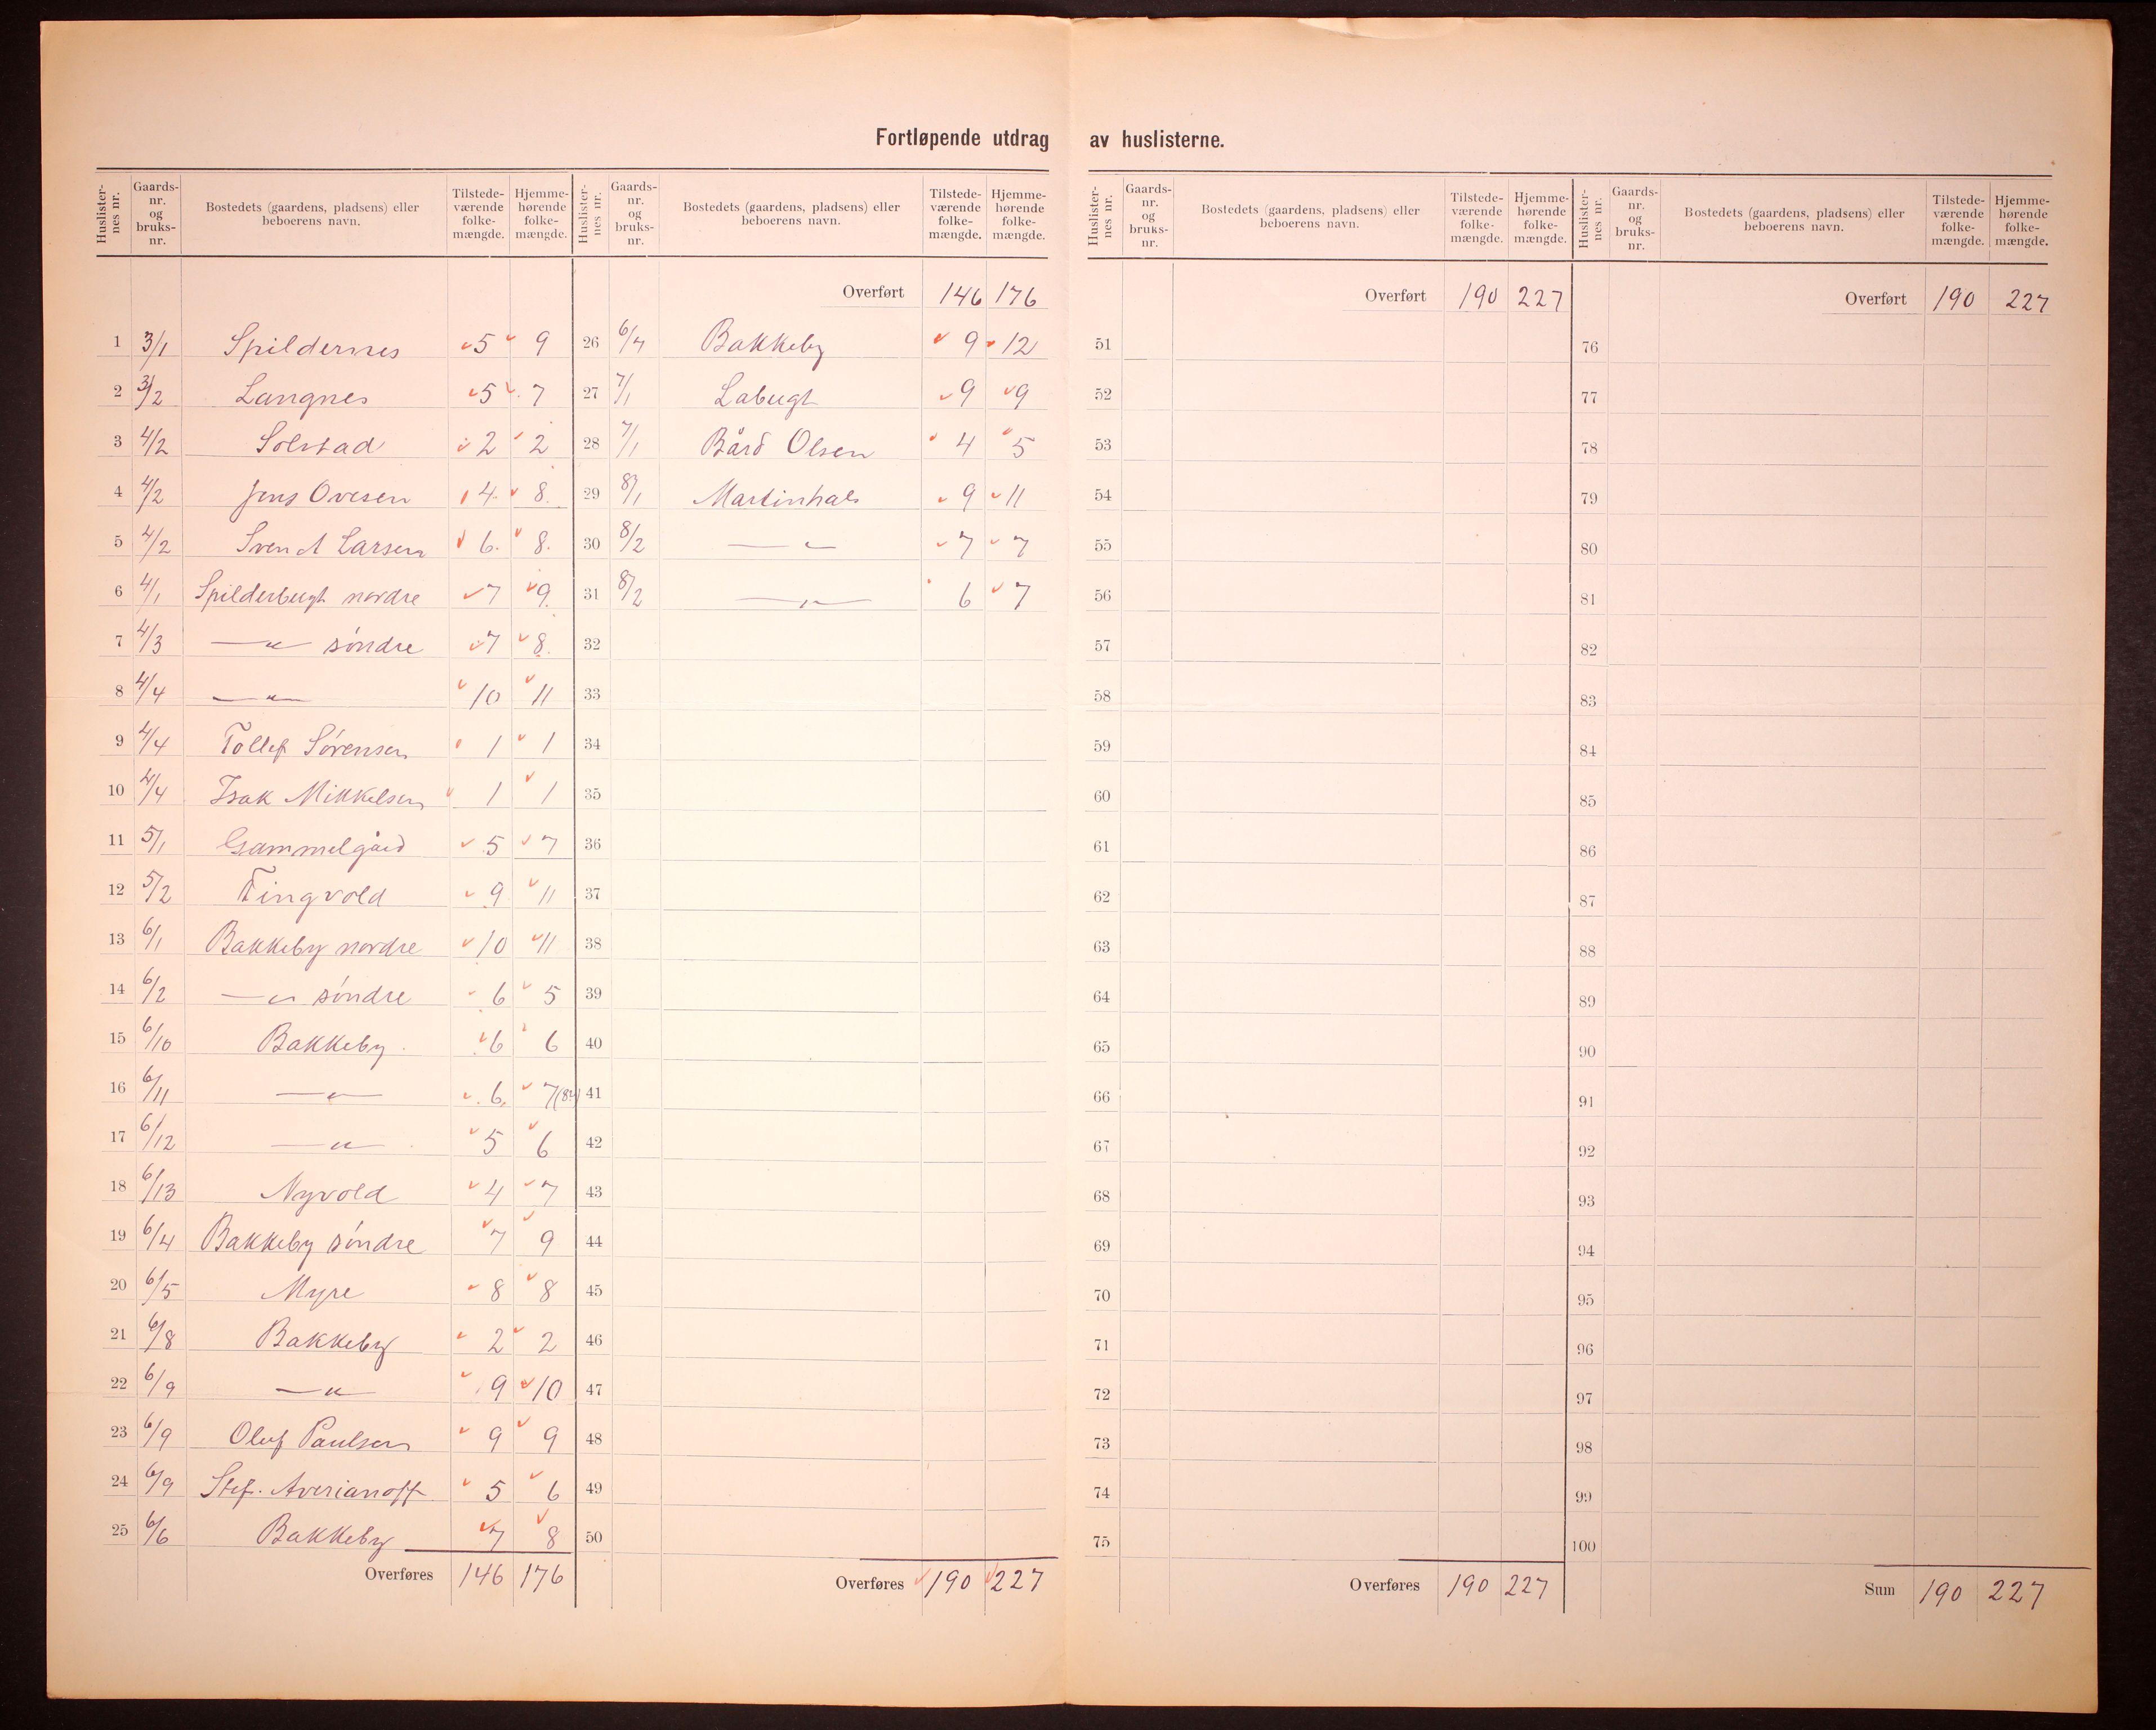 Fortløpende utdrag av huslisterne.
Huslisternes nr. Gaardsnr. og bruksnr. Bostedets (gaardens, pladsens) eller beboerens navn. Tilstedeværende folkemængde. Hjemmehørende folkemængde.
1 3/1 Spildernes 5 9
2 3/2 Langnes 5 7
3 4/2 Solstad 2 2
4 4/2 Jens Ovesen 4 8
5 4/2 Svend Larsen 6 8
6 4/1 Spilderbugt nordre 7 9
7 4/3 —"— söndre 7 8
8 4/4 —"— 10 11
9 4/4 Tollef Sörensen 1 1
10 4/4 Isak Mikkelsen 1 1
11 5/1 Gammelgård 5 7
12 5/2 Tingvold 9 11
13 6/1 Bakkeby nordre 10 11
14 6/2 —"— söndre 6 5
15 6/10 Bakkeby 6 6
16 6/11 —"— 6 7 (8?)
17 6/12 —"— 5 6
18 6/13 Nyvold 4 7
19 6/4 Bakkeby söndre 7 9
20 6/5 Myre 8 8
21 6/8 Bakkeby 2 2
22 6/9 —"— 9 10
23 6/9 Oluf Paulsen 9 9
24 6/9 Stef. Averianoff 5 6
25 6/6 Bakkeby 7 8
Overføres 146 176
Huslisternes nr. Gaardsnr. og bruksnr. Bostedets (gaardens, pladsens) eller beboerens navn. Tilstedeværende folkemængde. Hjemmehørende folkemængde.
Overført 146 176
26 6/7 Bakkeby 9 12
27 7/1 Labugt 9 9
28 7/1 Bård Olsen 4 5
29 8/1 Martinhals 9 11
30 8/2 —"— 7 7
31 8/2 —"— 6 7
32
33
34
35
36
37
38
39
40
41
42
43
44
45
46
47
48
49
50
Overføres 190 227
Huslisternes nr. Gaardsnr. og bruksnr. Bostedets (gaardens, pladsens) eller beboerens navn. Tilstedeværende folkemængde. Hjemmehørende folkemængde.
Overført 190 227
51
52
53
54
55
56
57
58
59
60
61
62
63
64
65
66
67
68
69
70
71
72
73
74
75
Overføres 190 227
Huslisternes nr. Gaardsnr. og bruksnr. Bostedets (gaardens, pladsens) eller beboerens navn. Tilstedeværende folkemængde. Hjemmehørende folkemængde.
Overført 190 227
76
77
78
79
80
81
82
83
84
85
86
87
88
89
90
91
92
93
94
95
96
97
98
99
100
Sum 190 227